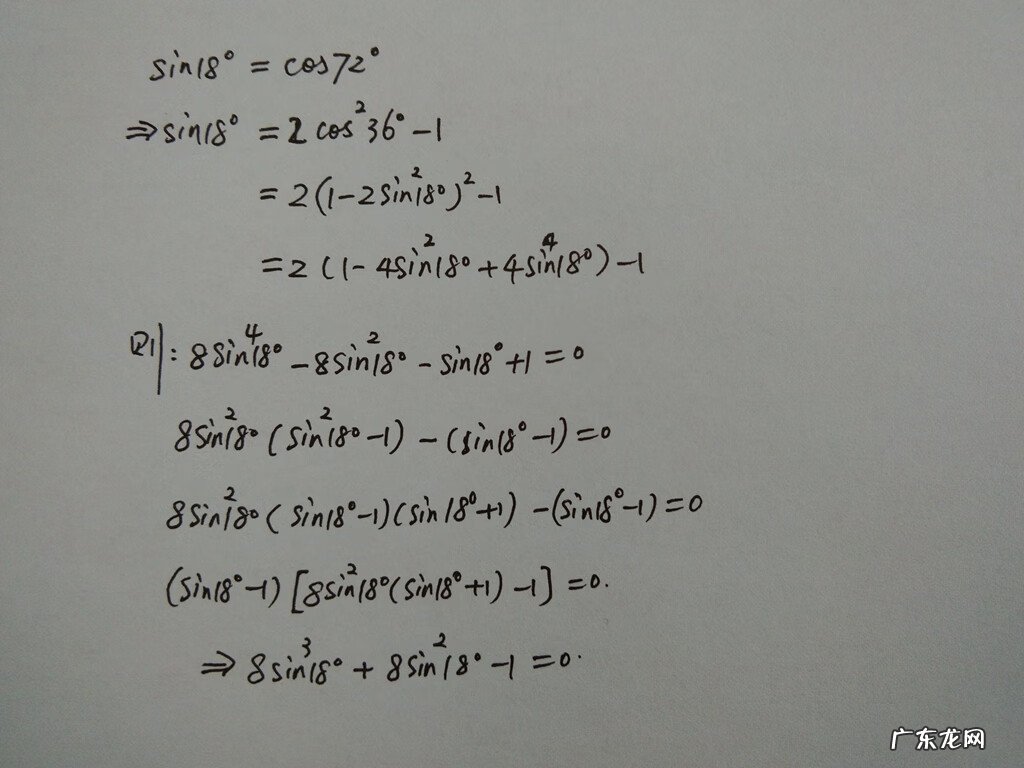 sin18° = cos72°
⇒ sin18° = 2cos²36° - 1
= 2(1-2sin²18°)² - 1
= 2(1-4sin²18° + 4sin⁴18°) - 1
则: 8sin⁴18° - 8sin²18° - sin18° + 1 = 0
8sin²18°(sin²18° - 1) - (sin18° - 1) = 0
8sin²18°(sin18° - 1)(sin18° + 1) - (sin18° - 1) = 0
(sin18° - 1)[8sin²18°(sin18° + 1) - 1] = 0.
⇒ 8sin³18° + 8sin²18° - 1 = 0.
广东龙网